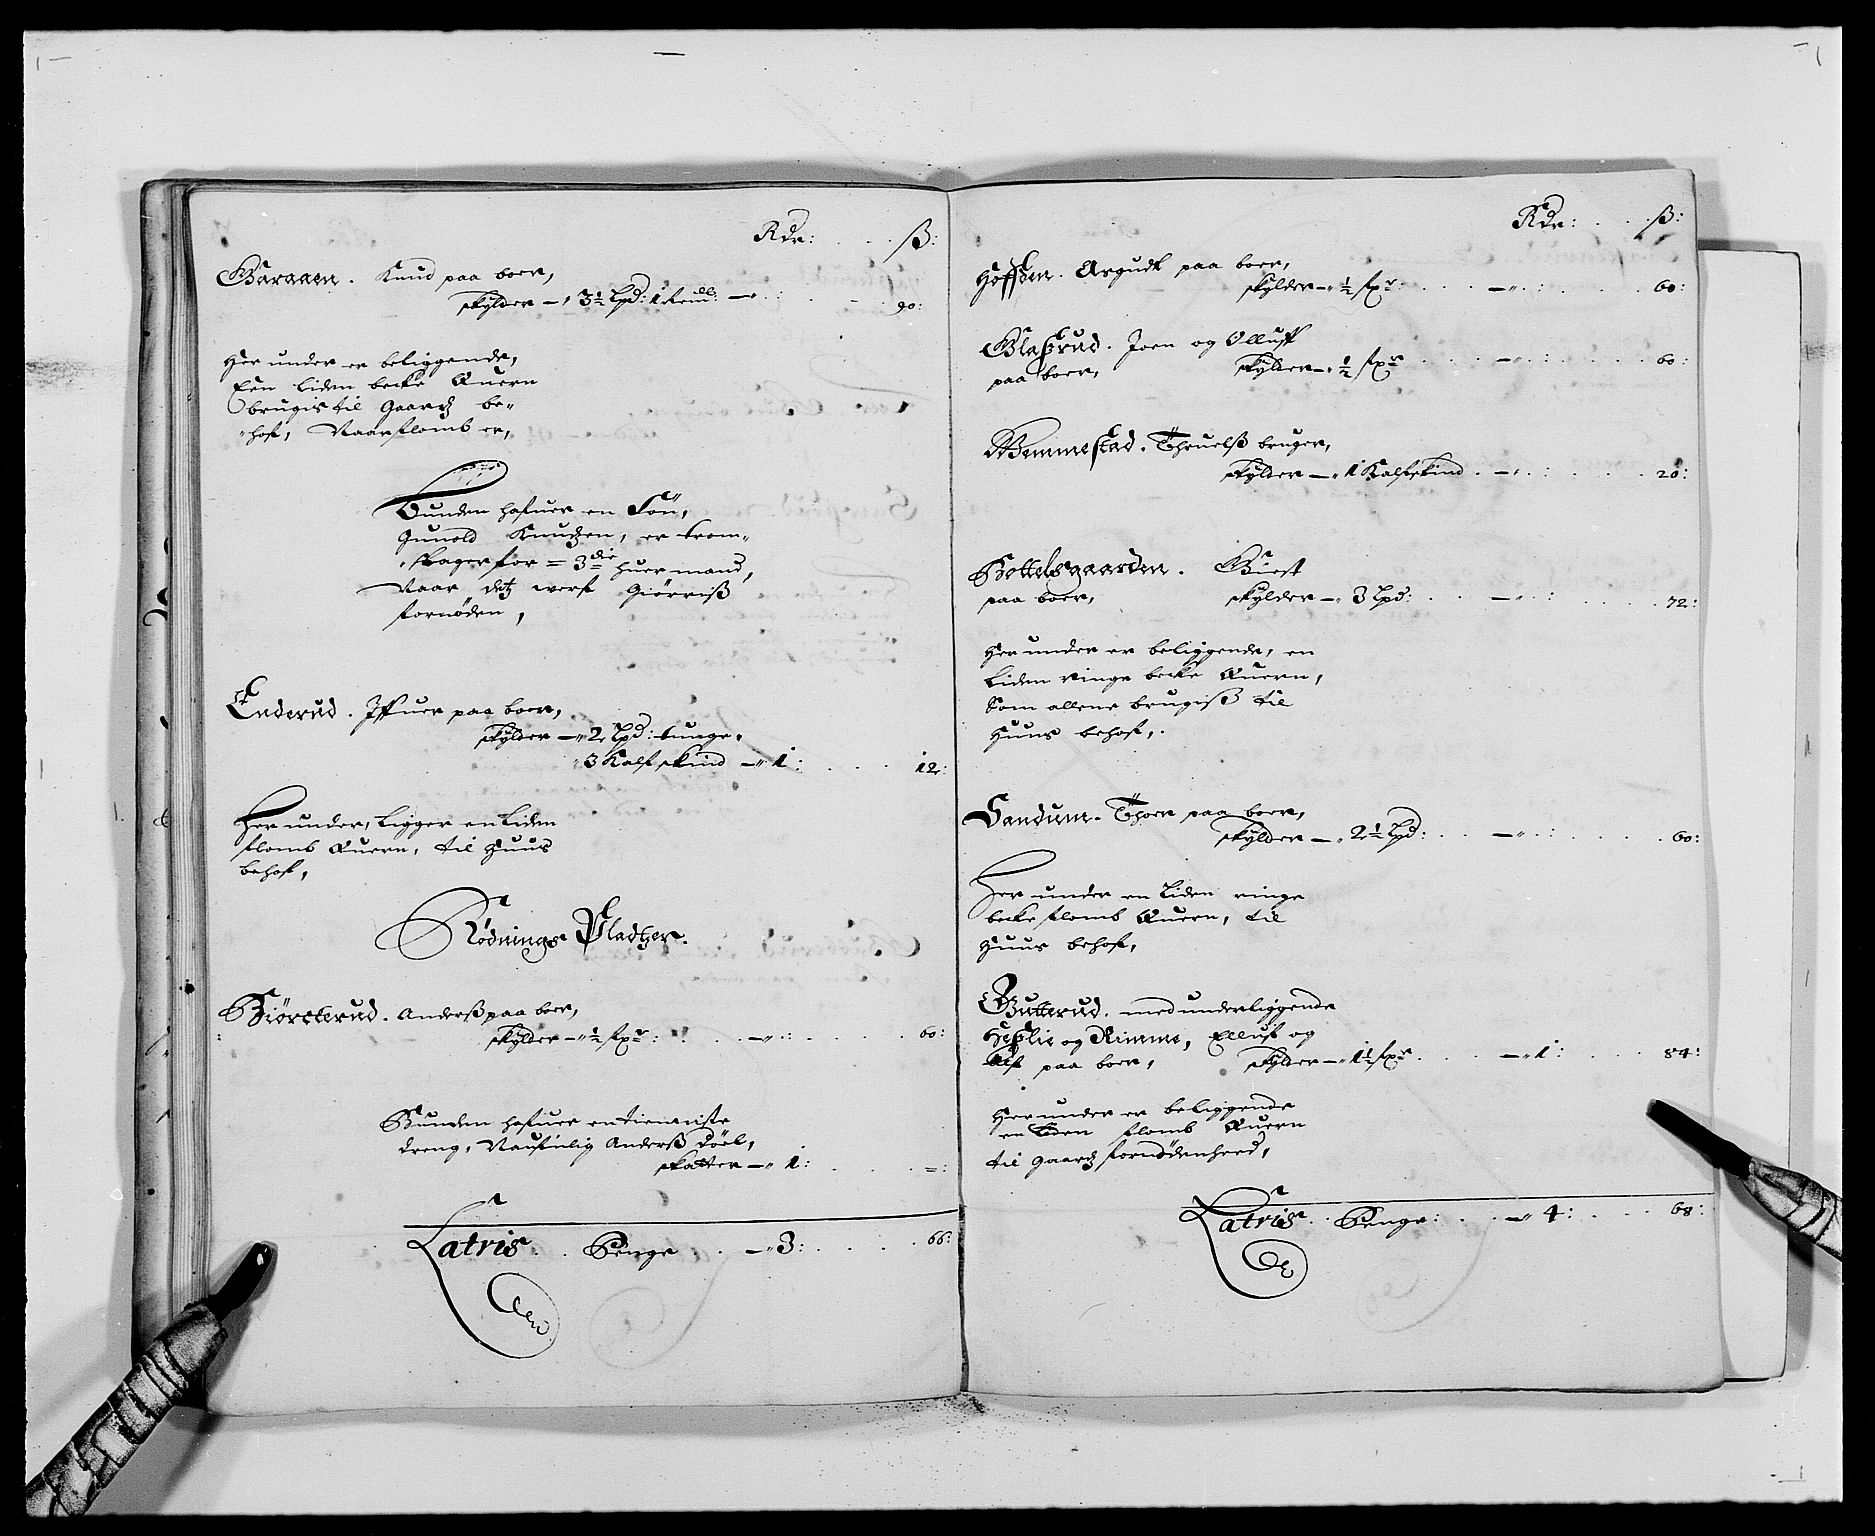 Rdr: ß:
Garaaen. Knud paa boer,
skylder — 3½ Lpd: 1 — 90:
Her under er beliggende,
Een liden becke Quern
brugis til Gaardz be-
hof, Naar flomb er,
Bonden hafuer en Sön,
Gunold Knudzen, er trom-
slager for = 3die huer mand,
Naar detz werf Giörris
fornöden,
Enderud. Iffuer paa boer,
skylder — 2 Lpd: tunge,
3 Kalfskind — 1: 12:
Her under, Ligger en Liden
flomb Quern, til Huus
behof,
Rödnings Pladtzer.
Biörcterud. Anderß paa boer,
skylder — ½ fxr: — 60:
Bunden hafuer en tieniste
dreng, Naufnlig Anderß
skatter — 1: =:
Latris. Penge — 3: 66:
Rdr: ß:
Hoffsen. Asgudt paa boer,
skylder — ½ fxr: — 60:
Glaßrud. Joen og Olluff
paa boer, skylder — ½ fxr — 60:
Wemmestad. Thruelß bruger,
skylder — 1 Kalfskind — 20:
Bottelsgaarden.
paa boer, skylder — 3 Lpd: — 72:
Her under er beliggende, en
liden ringe becke Quern,
Som allene brugiß til
Huus behof,
Sandum. Thoer paa boer,
skylder — 2½ Lpd: — 60:
Her under en Liden ringe
becke flomb Quern, til
Huus behof,
Gutterud. med underliggende
Heßlie og Rimme, Elluf og
Alf paa boer, skylder — 1½ fxr — 1: 84:
Her under er beliggende
en liden flomb Quern
til Gaardz fornödenheed,
Latris. Penge: — 4: 68: